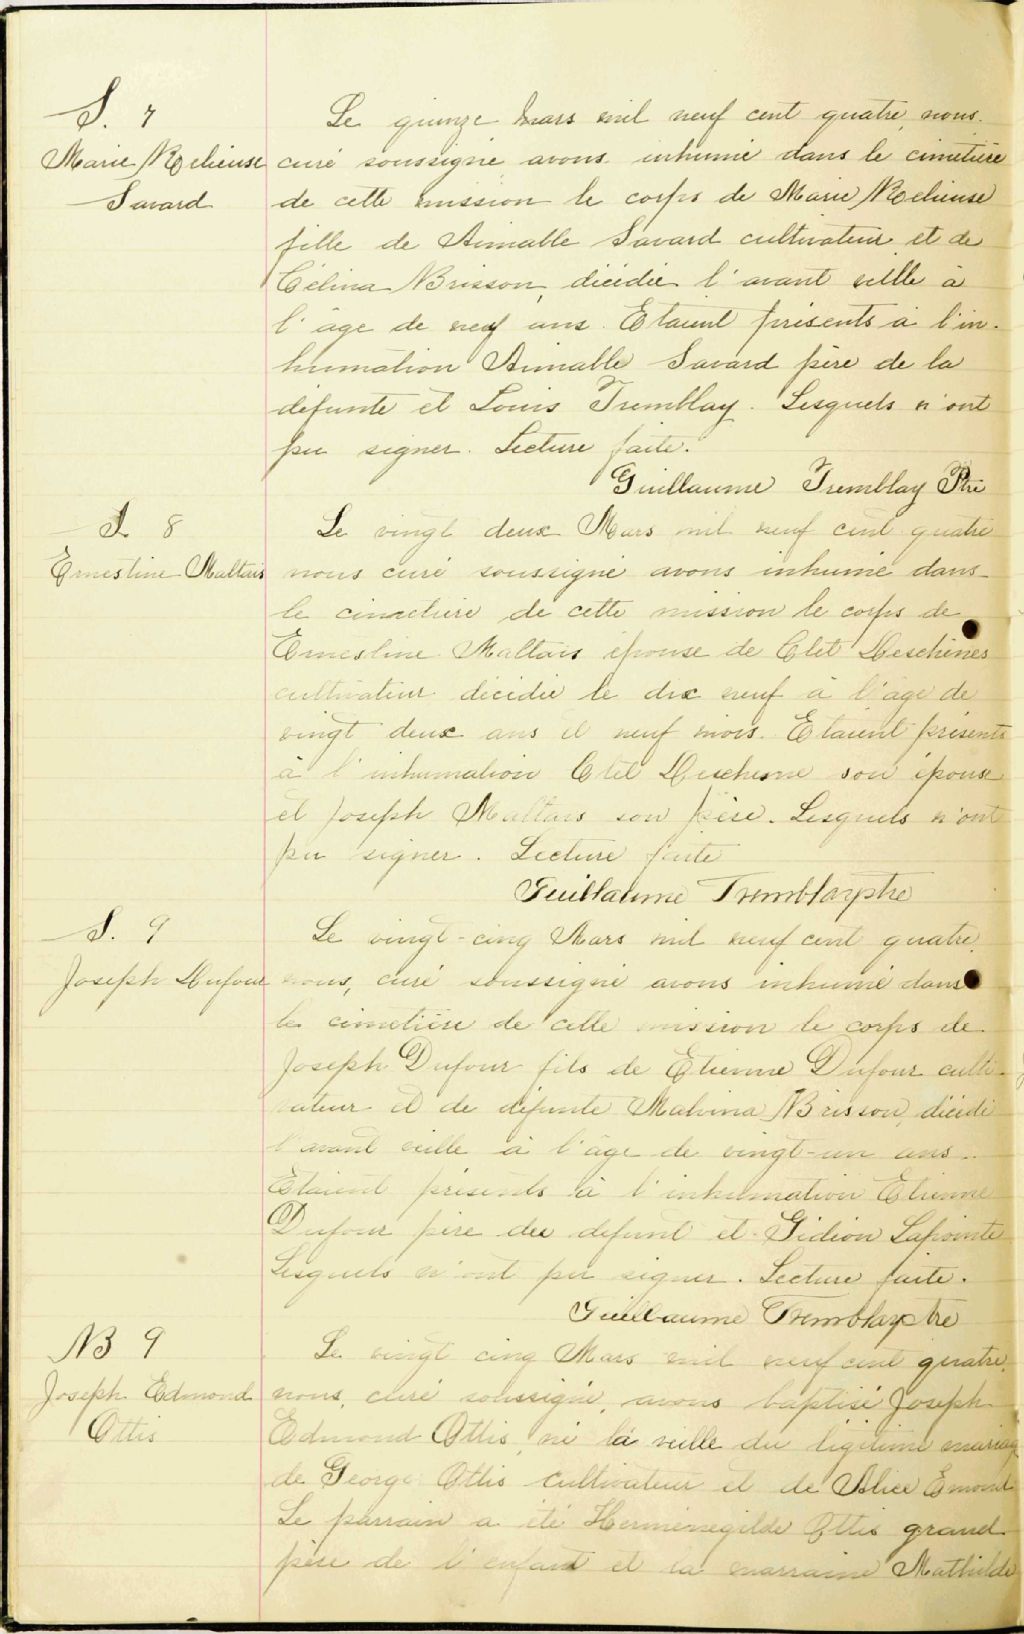 S. 7
Marie Relieuse
Savard
Le quinze Mars mil neuf cent quatre, nous
curé soussigné avons inhumé dans le cimetière
de cette mission le corps de Marie Relieuse
fille de Aimable Savard cultivateur et de
Célina Brisson, décédée l'avant veille à
l'âge de neuf ans. Etaient présents à l'in-
humation Aimable Savard père de la
défunte et Louis Tremblay. Lesquels n'ont
pu signer. Lecture faite.
Guillaume Tremblay Ptre
S. 8
Ernestine Maltais
Le vingt deux Mars mil neuf cent quatre
nous curé soussigné avons inhumé dans
le cimetière de cette mission le corps de
Ernestine Maltais épouse de Clet Deschènes
cultivateur décédée le dix neuf à l'âge de
vingt deux ans et neuf mois. Etaient présents
à l'inhumation Clet Deschesne son époux
et Joseph Maltais son père. Lesquels n'ont
pu signer. Lecture faite
Guillaume Tremblay ptre
S. 9
Joseph Dufour
Le vingt-cinq Mars mil neuf cent quatre,
nous, curé soussigné avons inhumé dans
le cimetière de cette mission le corps de
Joseph Dufour fils de Etienne Dufour culti-
vateur et de défunte Malvina Brisson, décédé
l'avant veille à l'âge de vingt-un ans.
Etaient présents à l'inhumation Etienne
Dufour père du défunt et Gidéon Lapointe
Lesquels n'ont pu signer. Lecture faite.
Guillaume Tremblay Ptre
B 9
Joseph Edmond
Ottis
Le vingt cinq Mars mil neuf cent quatre,
nous, curé soussigné, avons baptisé Joseph
Edmond Ottis, né la veille du légitime mariage
de George Ottis cultivateur et de Alice Emond
Le parrain a été Herménégilde Ottis grand
père de l'enfant et la marraine Mathilde